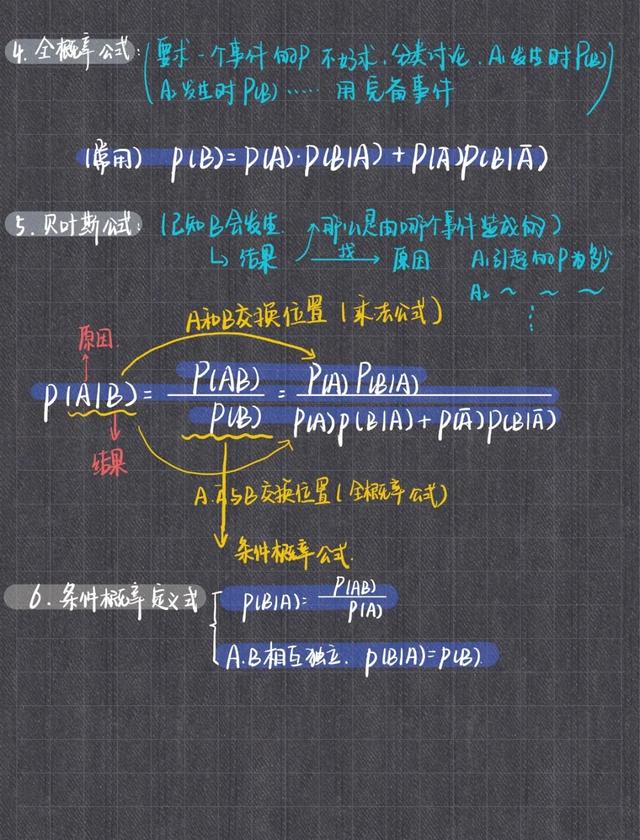 4. 全概率公式: (要求一个事件的P 不好求, 分类讨论, A₁发生时P(B)
A₂发生时P(B) …… 用完备事件)
(常用) P(B)=P(A)·P(B|A)+P(Ā)P(B|Ā)
5. 贝叶斯公式: (已知B会发生. 那么是由哪个事件造成的)
↳ 结果 找→ 原因 A₁引起的P为多少
A₂ ~ ~ ~
⋮
A和B交换位置 (乘法公式)
原因
P(A|B)= P(AB)/P(B) = P(A)P(B|A)/P(A)P(B|A)+P(Ā)P(B|Ā)
结果
A.Ā与B交换位置(全概率公式)
条件概率公式.
6. 条件概率定义式 P(B|A)= P(AB)/P(A)
A.B相互独立. P(B|A)=P(B)